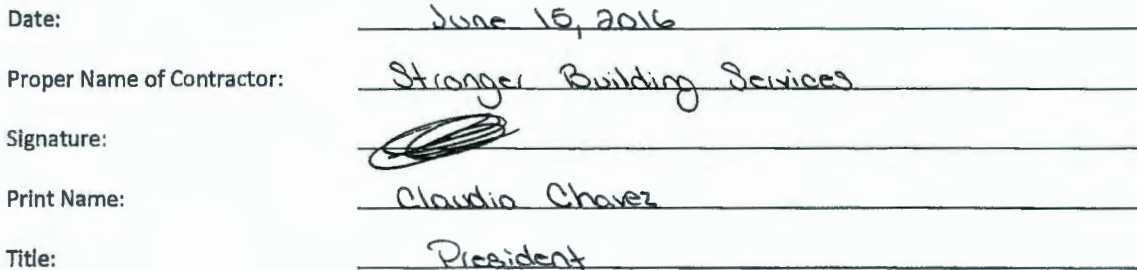 Date: June 15, 2016
Proper Name of Contractor: Stronger Building Services
Signature:
Print Name: Claudia Chavez
Title: President